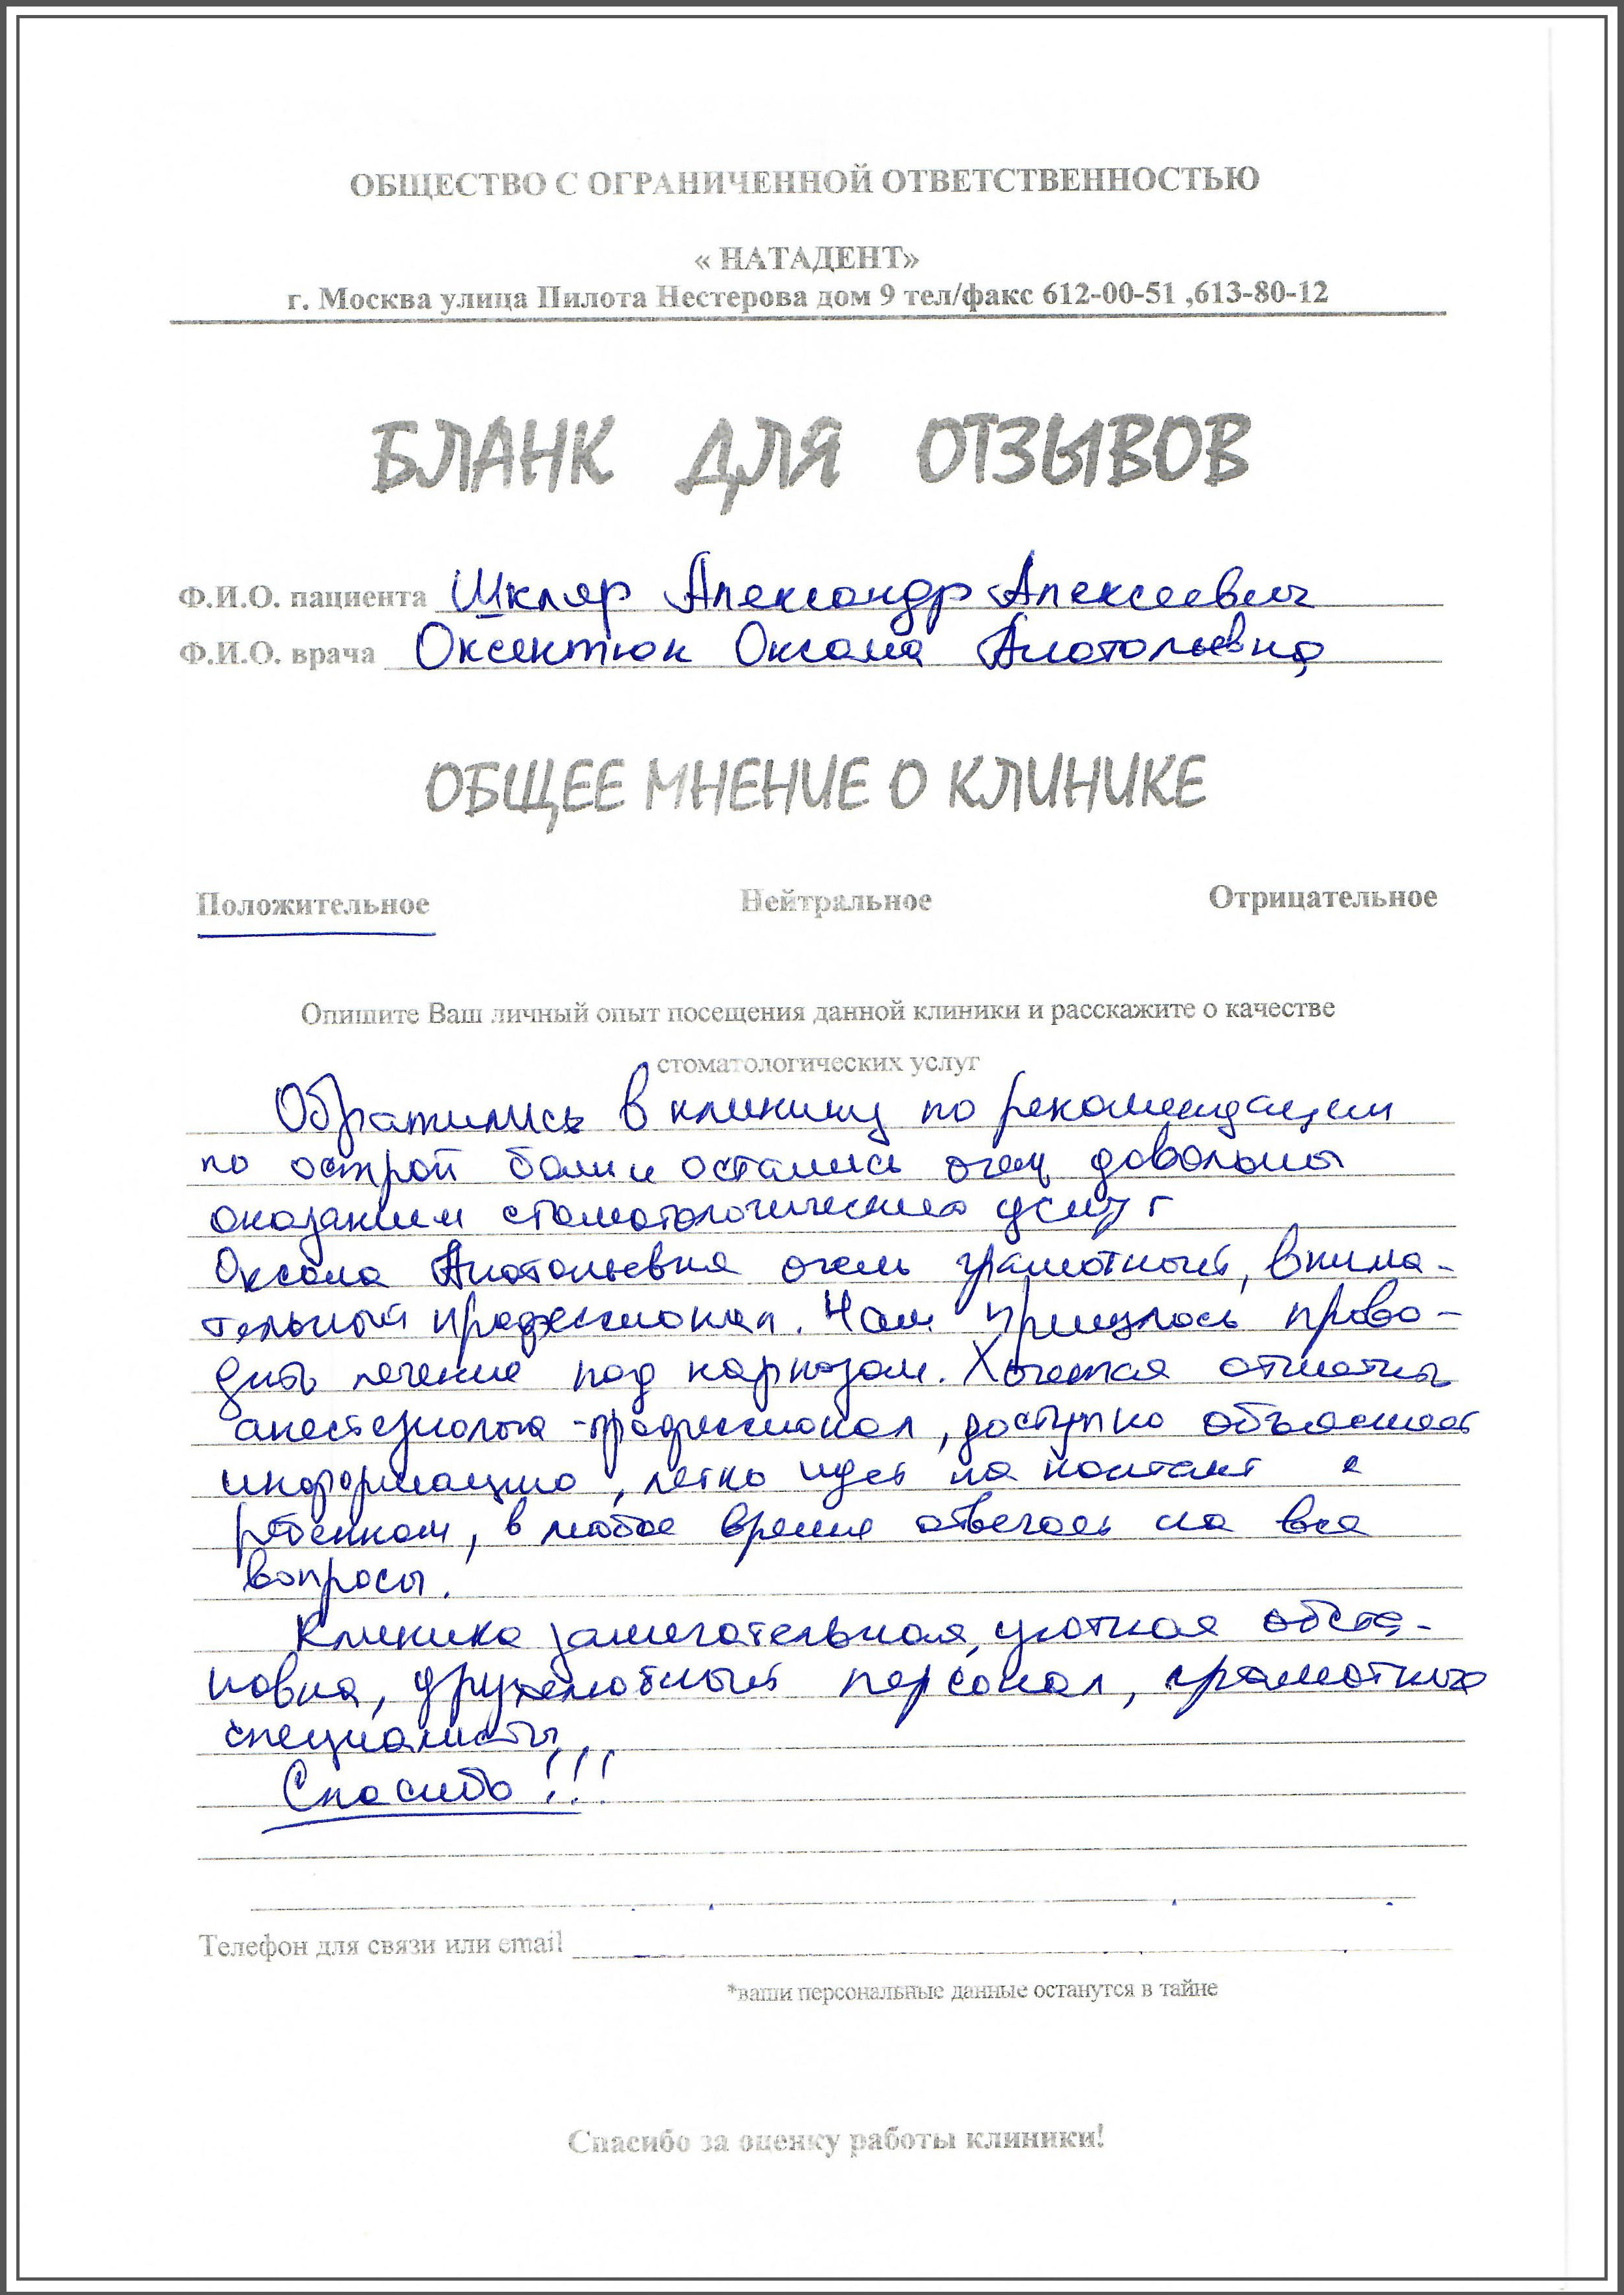 ОБЩЕСТВО С ОГРАНИЧЕННОЙ ОТВЕТСТВЕННОСТЬЮ
« НАТАДЕНТ»
г. Москва улица Пилота Нестерова дом 9 тел/факс 612-00-51 ,613-80-12
БЛАНК ДЛЯ ОТЗЫВОВ
Ф.И.О. пациента Шкляр Александр Алексеевич
Ф.И.О. врача Оксентюк Оксана Анатольевна
ОБЩЕЕ МНЕНИЕ О КЛИНИКЕ
Положительное Нейтральное Отрицательное
Опишите Ваш личный опыт посещения данной клиники и расскажите о качестве
стоматологических услуг
Обратились в клинику по рекомендации
по острой боли и остались очень довольны
оказанием стоматологических услуг
Оксана Анатольевна очень грамотный, внима-
тельный профессионал. Нам пришлось прово-
дить лечение под наркозом. Хочется отметить
анестезиолога -профессионал, доступно объясняет
информацию, легко идет на контакт с
ребенком, в любое время отвечает на все
вопросы.
Клиника замечательная, уютная обста-
новка, дружелюбный персонал, грамотные
специалисты.
Спасибо!!!
Телефон для связи или email
*ваши персональные данные останутся в тайне
Спасибо за оценку работы клиники!